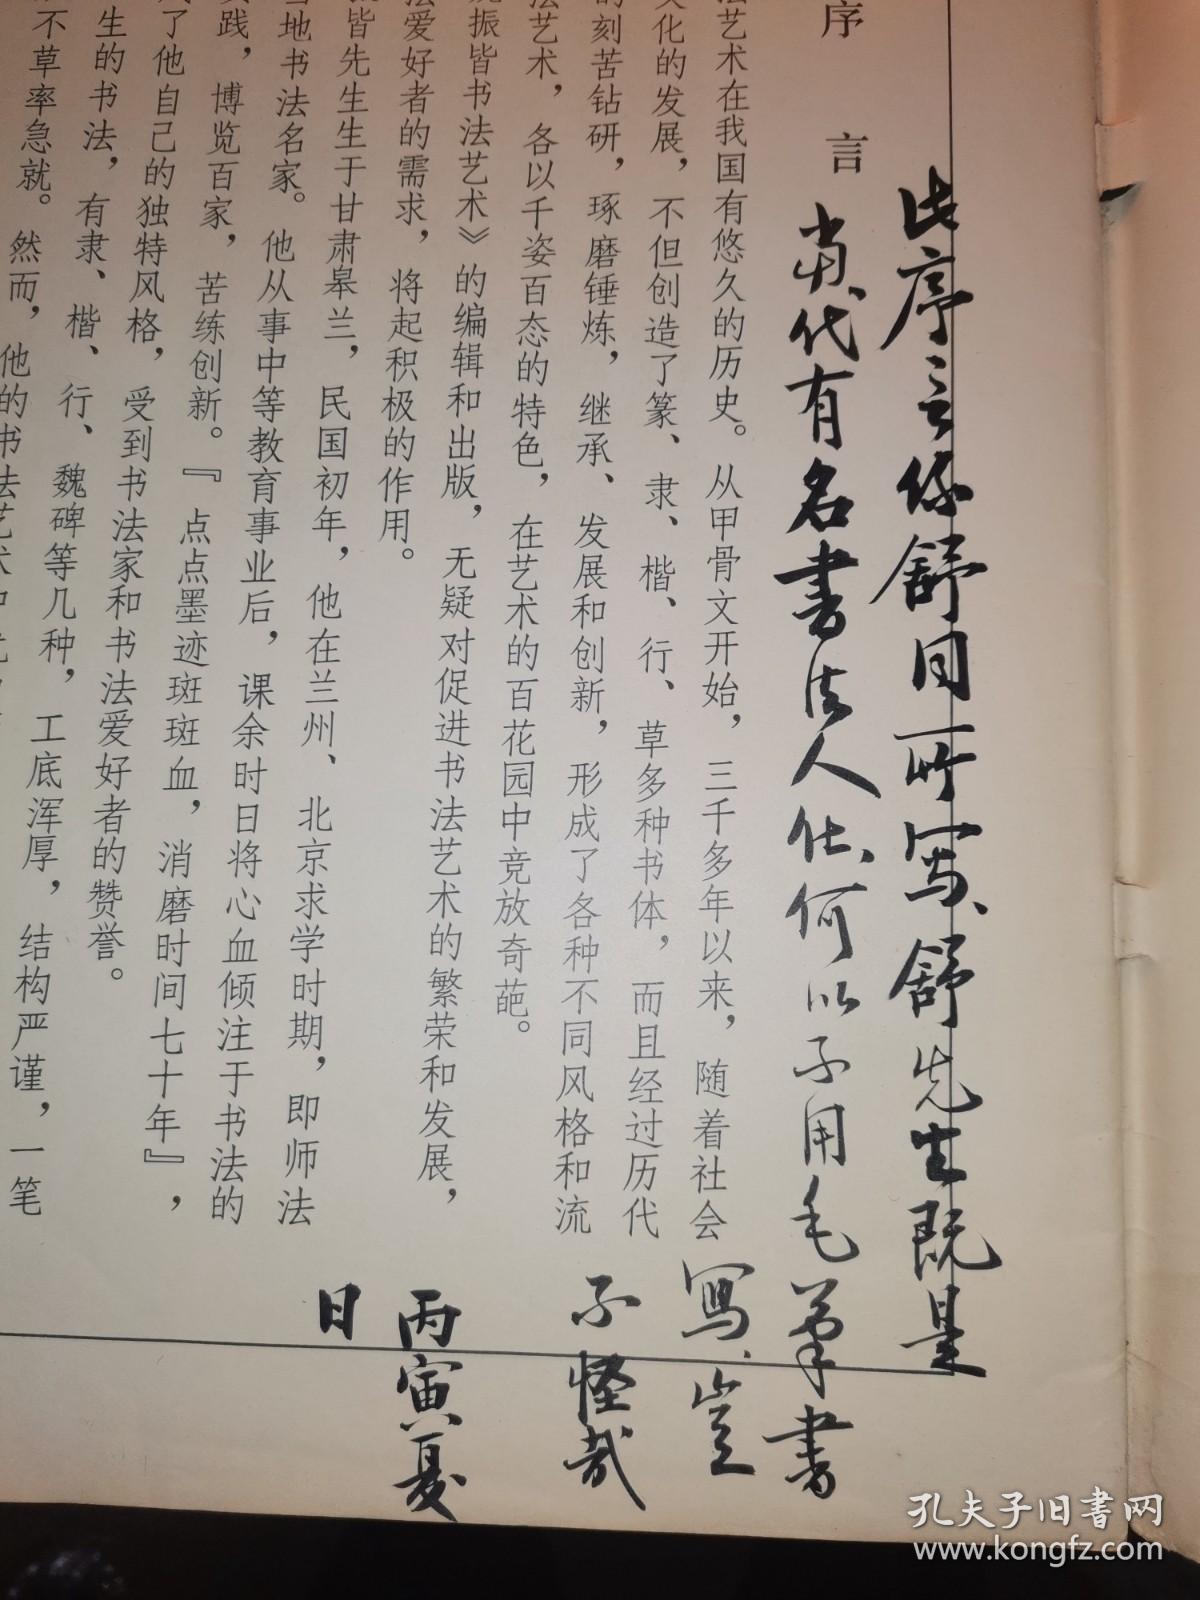 此序言係舒同所寫、舒先生既是
当代有名書法人仕、何以不用毛筆書
寫、豈
不怪哉
丙寅夏
日
序言
法艺术在我国有悠久的历史。从甲骨文开始，三千多年以来，随着社会
文化的发展，不但创造了篆、隶、楷、行、草多种书体，而且经过历代
的刻苦钻研，琢磨锤炼，继承、发展和创新，形成了各种不同风格和流
法艺术，各以千姿百态的特色，在艺术的百花园中竞放奇葩。
振皆书法艺术》的编辑和出版，无疑对促进书法艺术的繁荣和发展，
法爱好者的需求，将起积极的作用。
皆先生生于甘肃皋兰，民国初年，他在兰州、北京求学时期，即师法
当地书法名家。他从事中等教育事业后，课余时日将心血倾注于书法的
践，博览百家，苦练创新。『点点墨迹斑斑血，消磨时间七十年』，
了他自己的独特风格，受到书法家和书法爱好者的赞誉。
生的书法，有隶、楷、行、魏碑等几种，工底浑厚，结构严谨，一笔
不草率急就。然而，他的书法艺术
孔夫子旧书网
www.kongfz.com